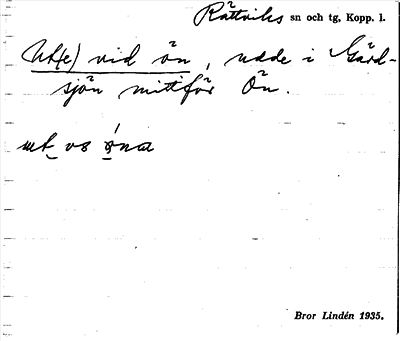 Rättviks sn och tg, Kopp. l.
Ut(e) vid ön, udde i Gård-
sjön mittför Ön.
ut vǝ ǿna
Bror Lindén 1935.